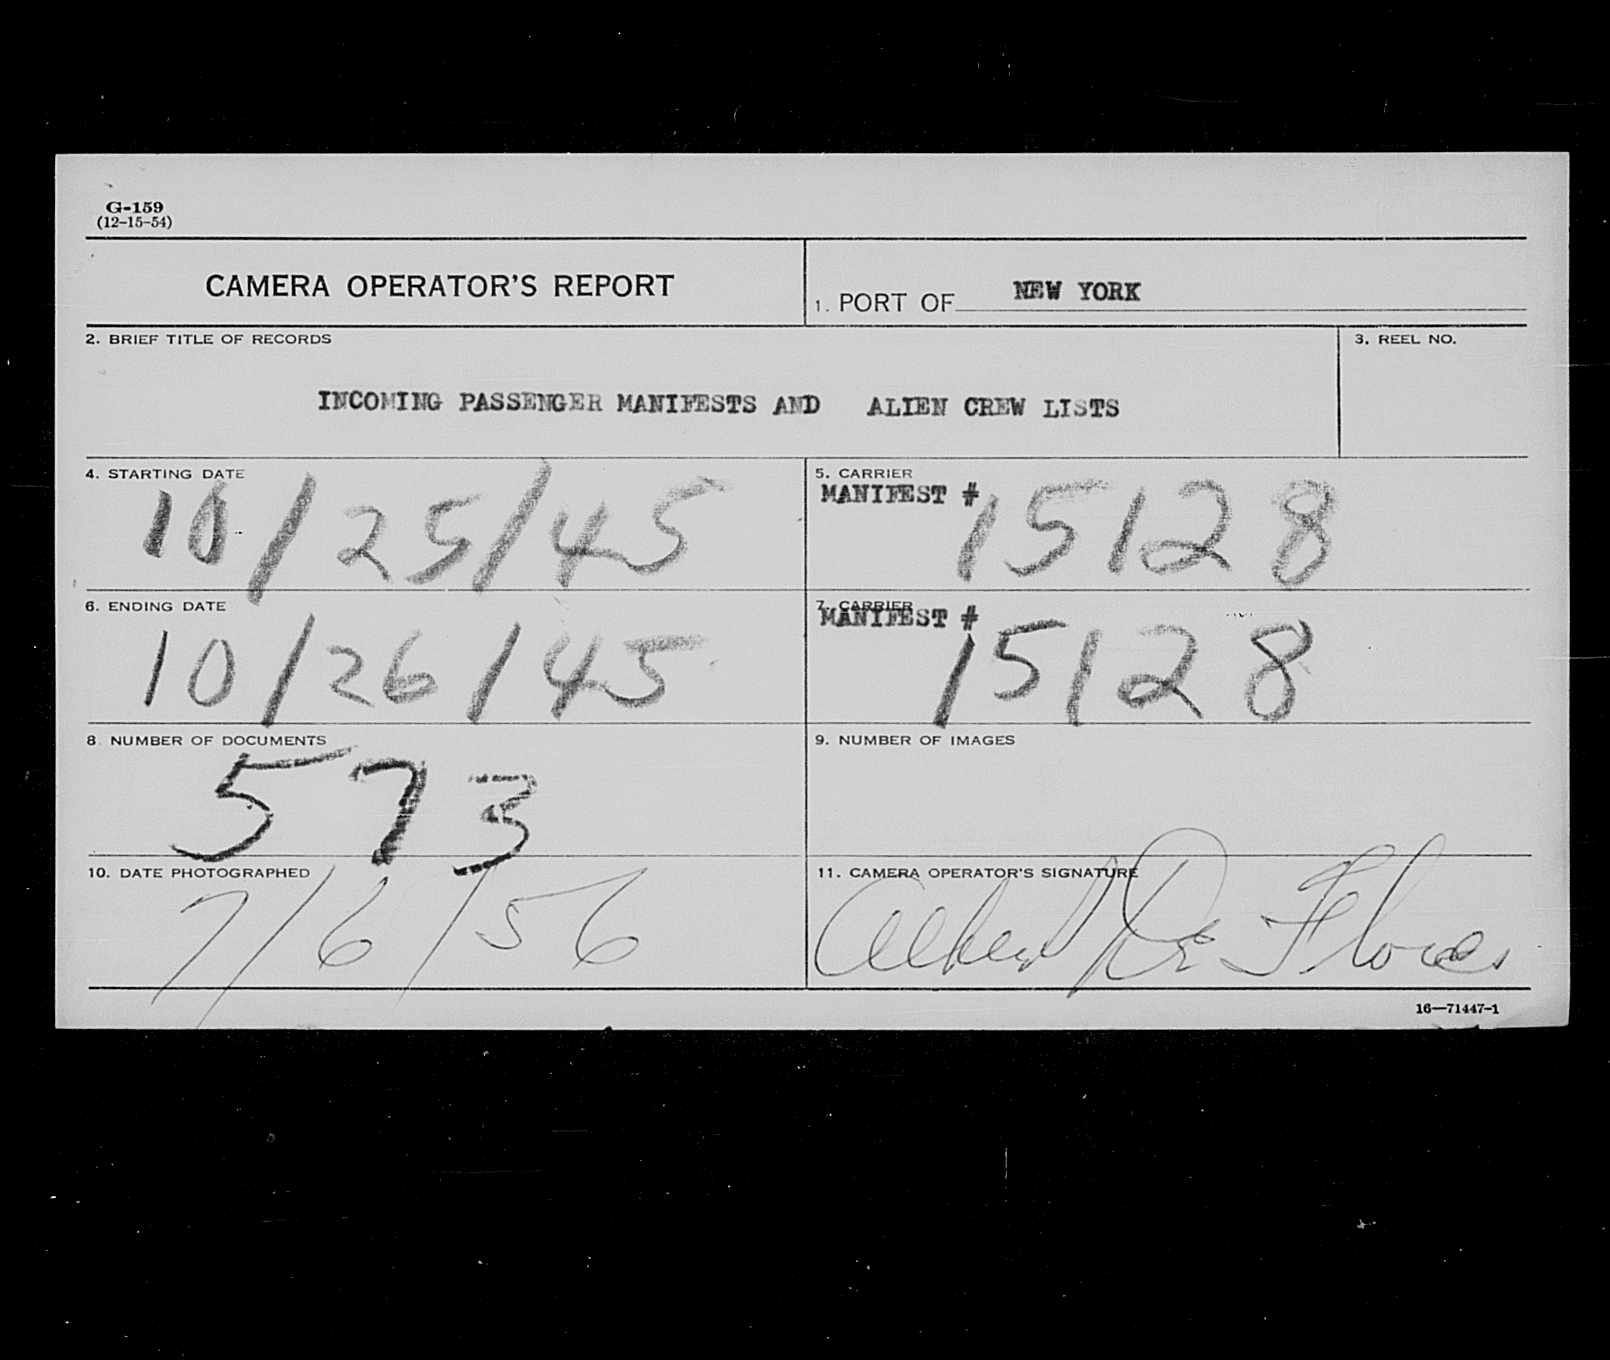 G-159
(12-15-54)
CAMERA OPERATOR'S REPORT
1. PORT OF NEW YORK
2. BRIEF TITLE OF RECORDS
3. REEL NO.
INCOMING PASSENGER MANIFESTS AND ALIEN CREW LISTS
4. STARTING DATE
10/25/45
5. CARRIER
MANIFEST # 15128
6. ENDING DATE
10/26/45
7. CARRIER
MANIFEST # 15128
8. NUMBER OF DOCUMENTS
573
9. NUMBER OF IMAGES
10. DATE PHOTOGRAPHED
7/6/56
11. CAMERA OPERATOR'S SIGNATURE
Albert De Flores
16—71447-1